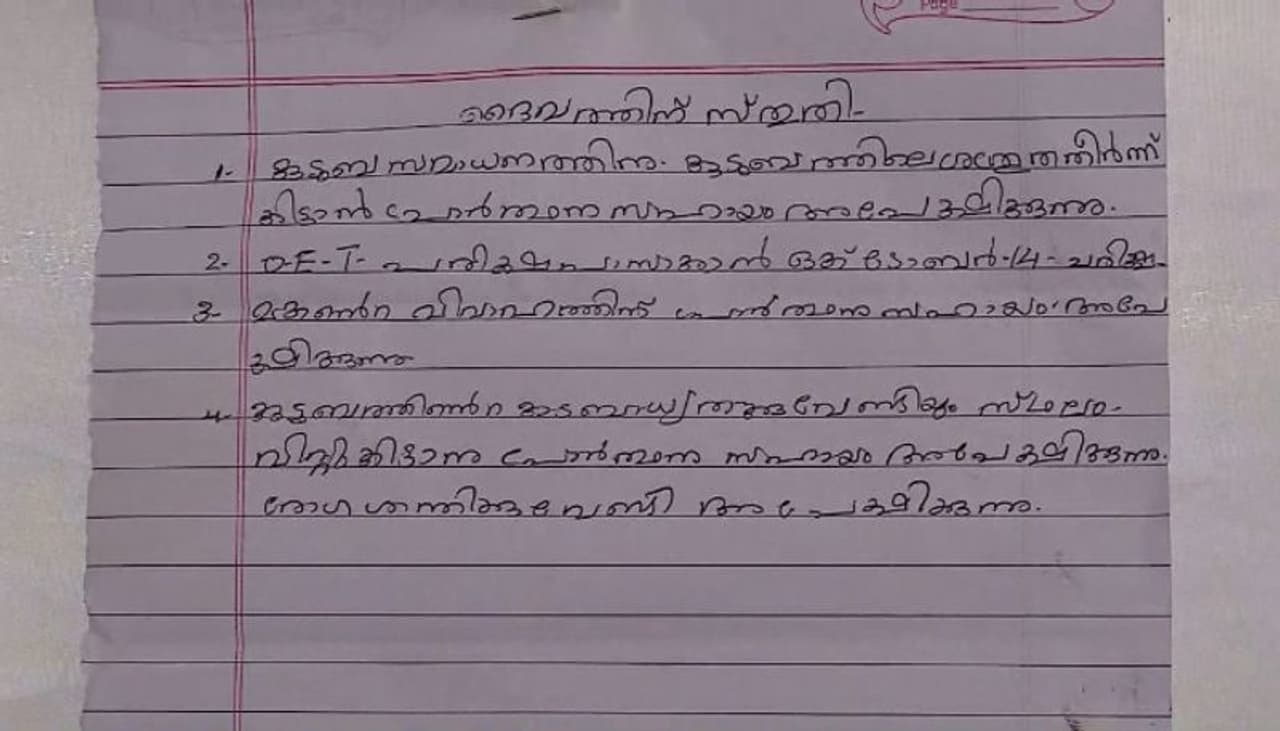 Page
ദൈവത്തിന് സ്തുതി-
1- കുടുബസമാധനത്തിനു. കുടുബത്തിലെശത്രുതതീർന്ന്
കിട്ടാൻ പ്രേർത്ഥന സഹായം അപേക്ഷിക്കുന്നു.
2- O-E-T- പരിക്ഷപാസാകാൻ ഒക്ടോബർ-14-
3- മകൺറ വിവാഹത്തിന് പ്രേർത്ഥന സഹായം അപേ
ക്ഷിക്കുന്നു
4- കുടുബത്തിൺറ വേണ്ടിയും സ്ഥലം-
വിറ്റുകിട്ടാനു പ്രേർത്ഥന സഹായം അപേക്ഷിക്കുന്നു.
രോഗശന്തിക്കുവേണ്ടി അപേക്ഷിക്കുന്നു.